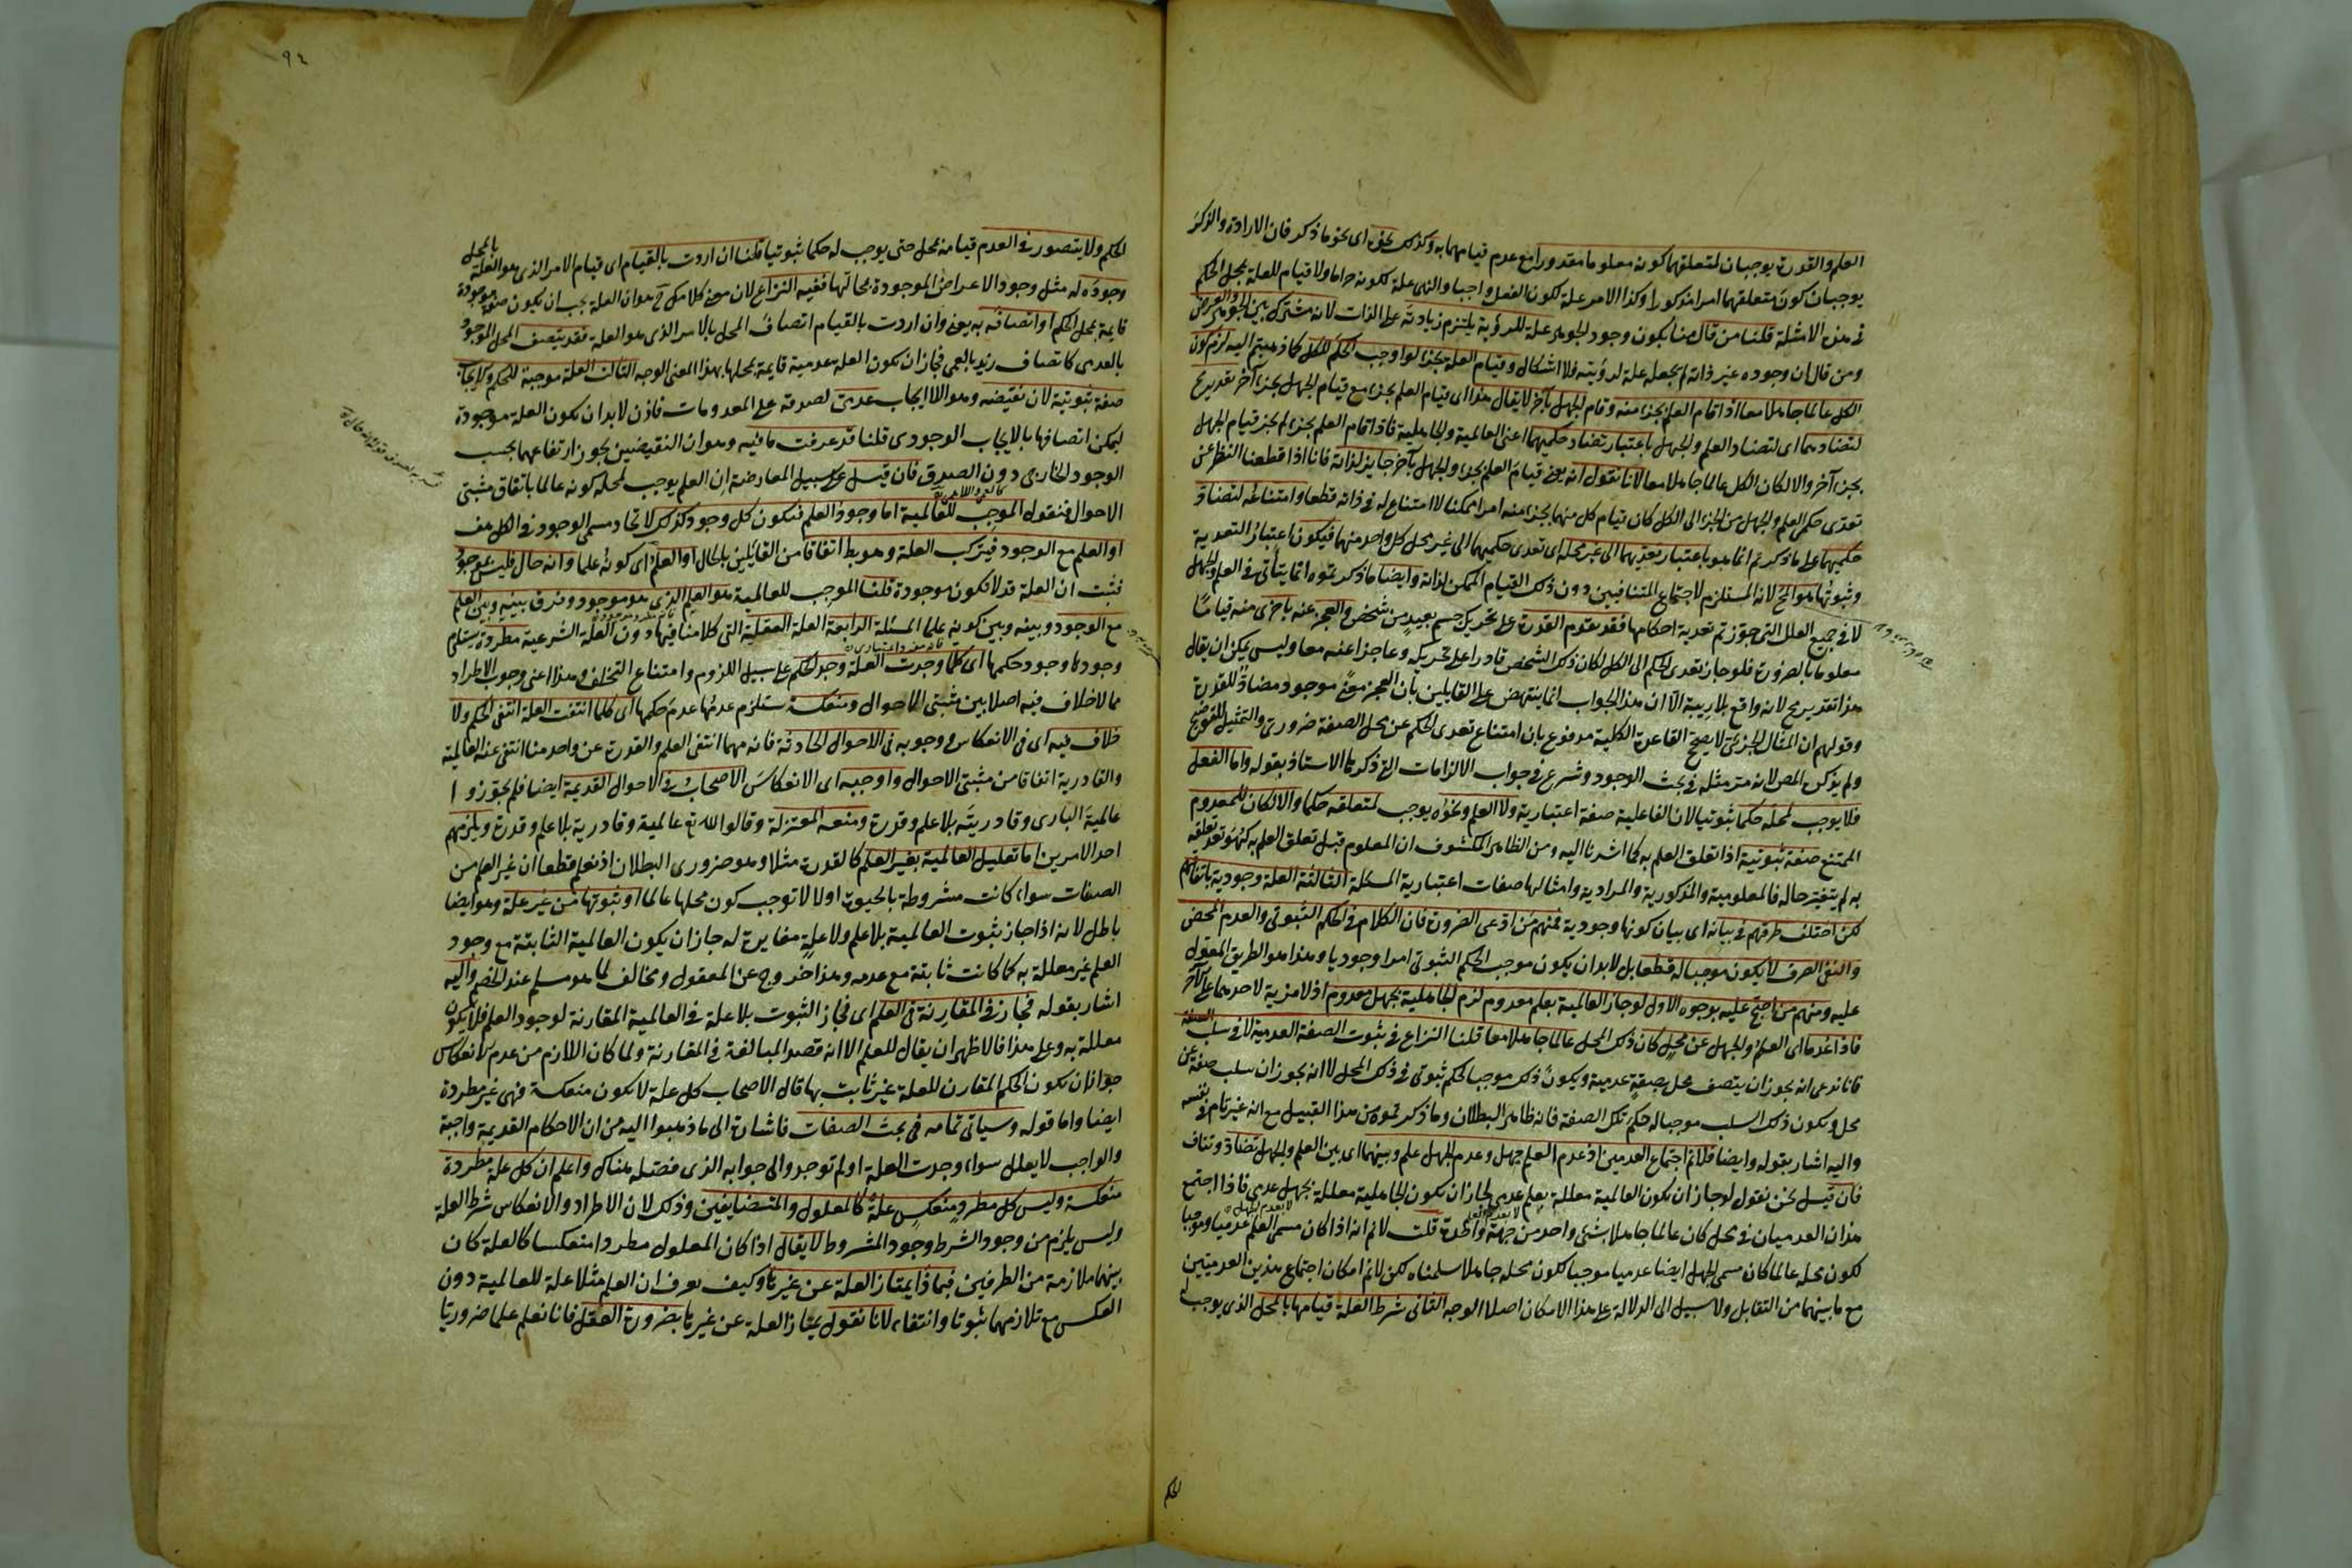 العلم والقدرة يوجبان لمتعلقهما كونه معلوما مقدورا مع عدم قيامهما به وكذلك نحوه اى نحو ما ذكر فان الارادة والذكر
يوجبان كون متعلقهما مرادا مذكورا وكذا الامر علة لكون الفعل واجبا والنهى علة لكونه حراما ولا قيام للعلة بمحل الحكم
فى هذه الامثلة قلنا من قال منا بكون وجود الجوهر علة للرؤية يلتزم زيادته على الذات لانه مشترك بين الجوهر والعرض
ومن قال ان وجوده عين ذاته لم يجعله علة لرؤيته فلا اشكال وقيام العلة بجزء لو اوجب الحكم للكل كما ذهبتم اليه لزم كون
الكل عالما جاهلا معا اذا قام العلم بجزء منه وقام الجهل بآخر لا يقال هذا اى قيام العلم بجزء مع قيام الجهل بجزء آخر تقدير مح
لتضادهما اى لتضاد العلم والجهل باعتبار تضاد حكميهما اعنى العالمية والجاهلية فاذا قام العلم بجزء لم يجز قيام الجهل
بجزء آخر والا لكان الكل عالما جاهلا معا لانا نقول انه يعنى قيام العلم بجزء والجهل بآخر جايز لذاته فانا اذا قطعنا النظر عن
تعدى حكم العلم والجهل من الجزء الى الكل كان قيام كل منهما بجزء منه امرا ممكنا لا امتناع له فى ذاته قطعا وامتناعه لتضاد
حكميهما على ما ذكرتم انما هو باعتبار تعديهما الى غير محله اى تعدى حكميهما الى غير محل كل واحد منهما فيكون اعتبار التعدية
وثبوتها هو المح لانه المستلزم لاجتماع المتنافيين دون ذلك القيام الممكن لذاته وايضا ما ذكرتموه انما يتأتى فى العلم والجهل
لا فى جميع العلل التى جوزتم تعدية احكامها فقد تقوم القدرة على تحريك جسم بعيد من شخص والعجز عنه باخرى منه قياما
معلوما بالضرورة فلو جاز تعدى الحكم الى الكل لكان ذلك الشخص قادرا على تحريكه وعاجزا عنه معا وليس يمكن ان يقال
هذا تقدير مح لانه واقع بلا ريبة الا ان هذا الجواب انما ينتهض على القايلين بان العجز معنى موجود مضاد للقدرة
وقولهم ان المثال الجزئى لا يصحح القاعدة الكلية مدفوع بان امتناع تعدى الحكم عن محل الصفة ضرورى والتمثيل للتوضيح
ولم يذكره المص لانه مر مثله فى بحث الوجود وشرع فى جواب الالزامات التى ذكرها الاستاذ بقوله واما الفعل
فلا يوجب لمحله حكما ثبوتيا لان الفاعلية صفة اعتبارية ولا العلم ونحوه يوجب لمتعلقه حكما والا لكان للمعدوم
الممتنع صفة ثبوتية اذا تعلق العلم به كما اشرنا اليه ومن الظاهر المكشوف ان المعلوم قبل تعلق العلم به كهو بعد تعلقه
به لم يتغير حاله فالمعلومية والمذكورية والمرادية وامثالها صفات اعتبارية المسئلة الثالثة العلة وجودية باتفاقهم
لكن اختلف طرقهم فى بيانه اى بيان كونها وجودية فمنهم من ادعى الضرورة فان الكلام فى الحكم الثبوتى والعدم المحض
والنفى الصرف لا يكون موجبا له قطعا بل لا بد ان يكون موجب الحكم الثبوتى امرا وجوديا وهذا هو الطريق المعول
عليه ومنهم من احتج عليه بوجوه الاول لو جاز العالمية بعلم معدوم لزم الجاهلية بجهل معدوم اذ لا مزية لاحدهما على الآخر
فاذا عدما اى العلم والجهل عن محل كان ذلك المحل عالما جاهلا معا قلنا النزاع فى ثبوت الصفة العدمية لا فى سلب الصفة
فانا ندعى انه يجوز ان يتصف محل بصفة عدمية ويكون ذلك موجبا لحكم ثبوتى فى ذلك المحل لا انه يجوز ان سلب صفة عن
محل ويكون ذلك السلب موجبا له حكم تلك الصفة فانه ظاهر البطلان وما ذكرتموه من هذا القبيل مع انه غير تام فى نفسه
واليه اشار بقوله وايضا فلا نم اجتماع العدمين اذ عدم العلم جهل وعدم الجهل علم وبينهما اى بين العلم والجهل تضاد وتناف
فان قيل نحن نقول لو جاز ان تكون العالمية معللة بعلم عدمى لجاز ان تكون الجاهلية معللة بجهل عدمى فاذا اجتمع
هذان العدميان فى محل كان عالما جاهلا بشئ واحد من جهة واحدة قلت لا نم انه اذا كان مسمى العلم عدميا وموجبا
لكون محله عالما كان مسمى الجهل ايضا عدميا موجبا لكون محله جاهلا سلمناه لكن لا نم امكان اجتماع هذين العدميين
مع ما بينهما من التقابل ولا سبيل الى الدلالة على هذا الامكان اصلا الوجه الثانى شرط العلة قيامها بالمحل الذى يوجب له
الحكم
٩٤
الحكم ولا يتصور فى العدم قيامه بمحل حتى يوجب له حكما ثبوتيا قلنا ان اردت بالقيام اى قيام الامر الذى هو العلة بالمحل
وجوده له مثل وجود الاعراض الموجودة بمحالها ففيه النزاع لان معنى كلامك ح هو ان العلة يجب ان يكون صفة موجودة
قايمة بمحل الحكم او اتصافه به يعنى وان اردت بالقيام اتصاف المحل بالامر الذى هو العلة فقد يتصف المحل الموجود
بالعدمى كاتصاف زيد بالعمى فجاز ان يكون العلة عدمية قايمة بمحلها بهذا المعنى الوجه الثالث العلة موجبة للحكم والايجاب
صفة ثبوتية لان نقيضه وهو اللاايجاب عدمى لصدقه على المعدومات فاذن لا بد ان يكون العلة موجودة
ليمكن اتصافها بالايجاب الوجودى قلنا قد عرفت ما فيه وهو ان النقيضين يجوز ارتفاعهما بحسب
الوجود الخارجى دون الصدق فان قيل على سبيل المعارضة ان العلم يوجب لمحله كونه عالما باتفاق مثبتى
الاحوال فنقول الموجب للعالمية اما وجود العلم فيكون كل وجود كذلك لاتحاد مسمى الوجود فى الكل هف
او العلم مع الوجود فيتركب العلة وهو بط اتفاقا من القائلين بالحال او العلم اى كونه علما وانه حال فليس بموجود
فثبت ان العلة قد لا تكون موجودة قلنا الموجب للعالمية هو العلم الذى هو موجود وفرق بينه وبين العلم
مع الوجود وبينه وبين كونه علما المسئلة الرابعة العلة العقلية التى كلامنا فيها دون العلة الشرعية مطردة يستلزم
وجودها وجود حكمها اى كلما وجدت العلة وجد الحكم على سبيل اللزوم وامتناع التخلف وهذا اعنى وجوب الاطراد
مما لا خلاف فيه اصلا بين مثبتى الاحوال ومنعكسة يستلزم عدمها عدم حكمها اى كلما انتفت العلة انتفى الحكم ولا
خلاف فيه اى فى الانعكاس ووجوبه فى الاحوال الحادثة فانه مهما انتفى العلم والقدرة عن واحد منا انتفى عنه العالمية
والقادرية اتفاقا من مثبتى الاحوال واوجبه اى الانعكاس الاصحاب فى الاحوال القديمة ايضا فلم يجوزوا
عالمية البارى وقادريته بلا علم وقدرة ومنعه المعتزلة وقالوا لله تع عالمية وقادرية بلا علم وقدرة ويلزمهم
احد الامرين اما تعليل العالمية بغير العلم كالقدرة مثلا وهو ضرورى البطلان اذ نعلم قطعا ان غير العلم من
الصفات سواء كانت مشروطة بالحيوة او لا لا توجب كون محلها عالما او ثبوتها من غير علة وهو ايضا
باطل لانه اذا جاز ثبوت العالمية بلا علم ولا علة مغايرة له جاز ان يكون العالمية الثابتة مع وجود
العلم غير معللة به كما كانت ثابتة مع عدمه وهذا خروج عن المعقول ومخالف لما هو مسلم عند الخصم واليه
اشار بقوله فجاز فى المقارنة فى العلم اى فجاز الثبوت بلا علة فى العالمية المقارنة لوجود العلم فلا يكون
معللة به وعلى هذا فالاظهر ان يقال للعلم الا انه قصد المبالغة فى المقارنة ولما كان اللازم من عدم الانعكاس
جواز ان يكون الحكم المقارن للعلة غير ثابت بها قال الاصحاب كل علة لا يكون منعكسة فهى غير مطردة
ايضا واما قوله وسياتى تمامه فى بحث الصفات فاشارة الى ما ذهبوا اليه من ان الاحكام القديمة واجبة
والواجب لا يعلل سواء وجدت العلة او لم توجد والى جوابه الذى فصله هناك واعلم ان كل علة مطردة
منعكسة وليس كل مطرد ومنعكس علة كالمعلول والمتضايفين وذلك لان الاطراد والانعكاس شرط العلة
وليس يلزم من وجود الشرط وجود المشروط لا يقال اذا كان المعلول مطردا منعكسا كالعلة كان
بينهما ملازمة من الطرفين فبماذا يمتاز العلة عن غيرها وكيف يعرف ان العلم مثلا علة للعالمية دون
العكس مع تلازمهما ثبوتا وانتفاء لانا نقول يمتاز العلة عن غيرها بضرورة العقل فانا نعلم علما ضروريا